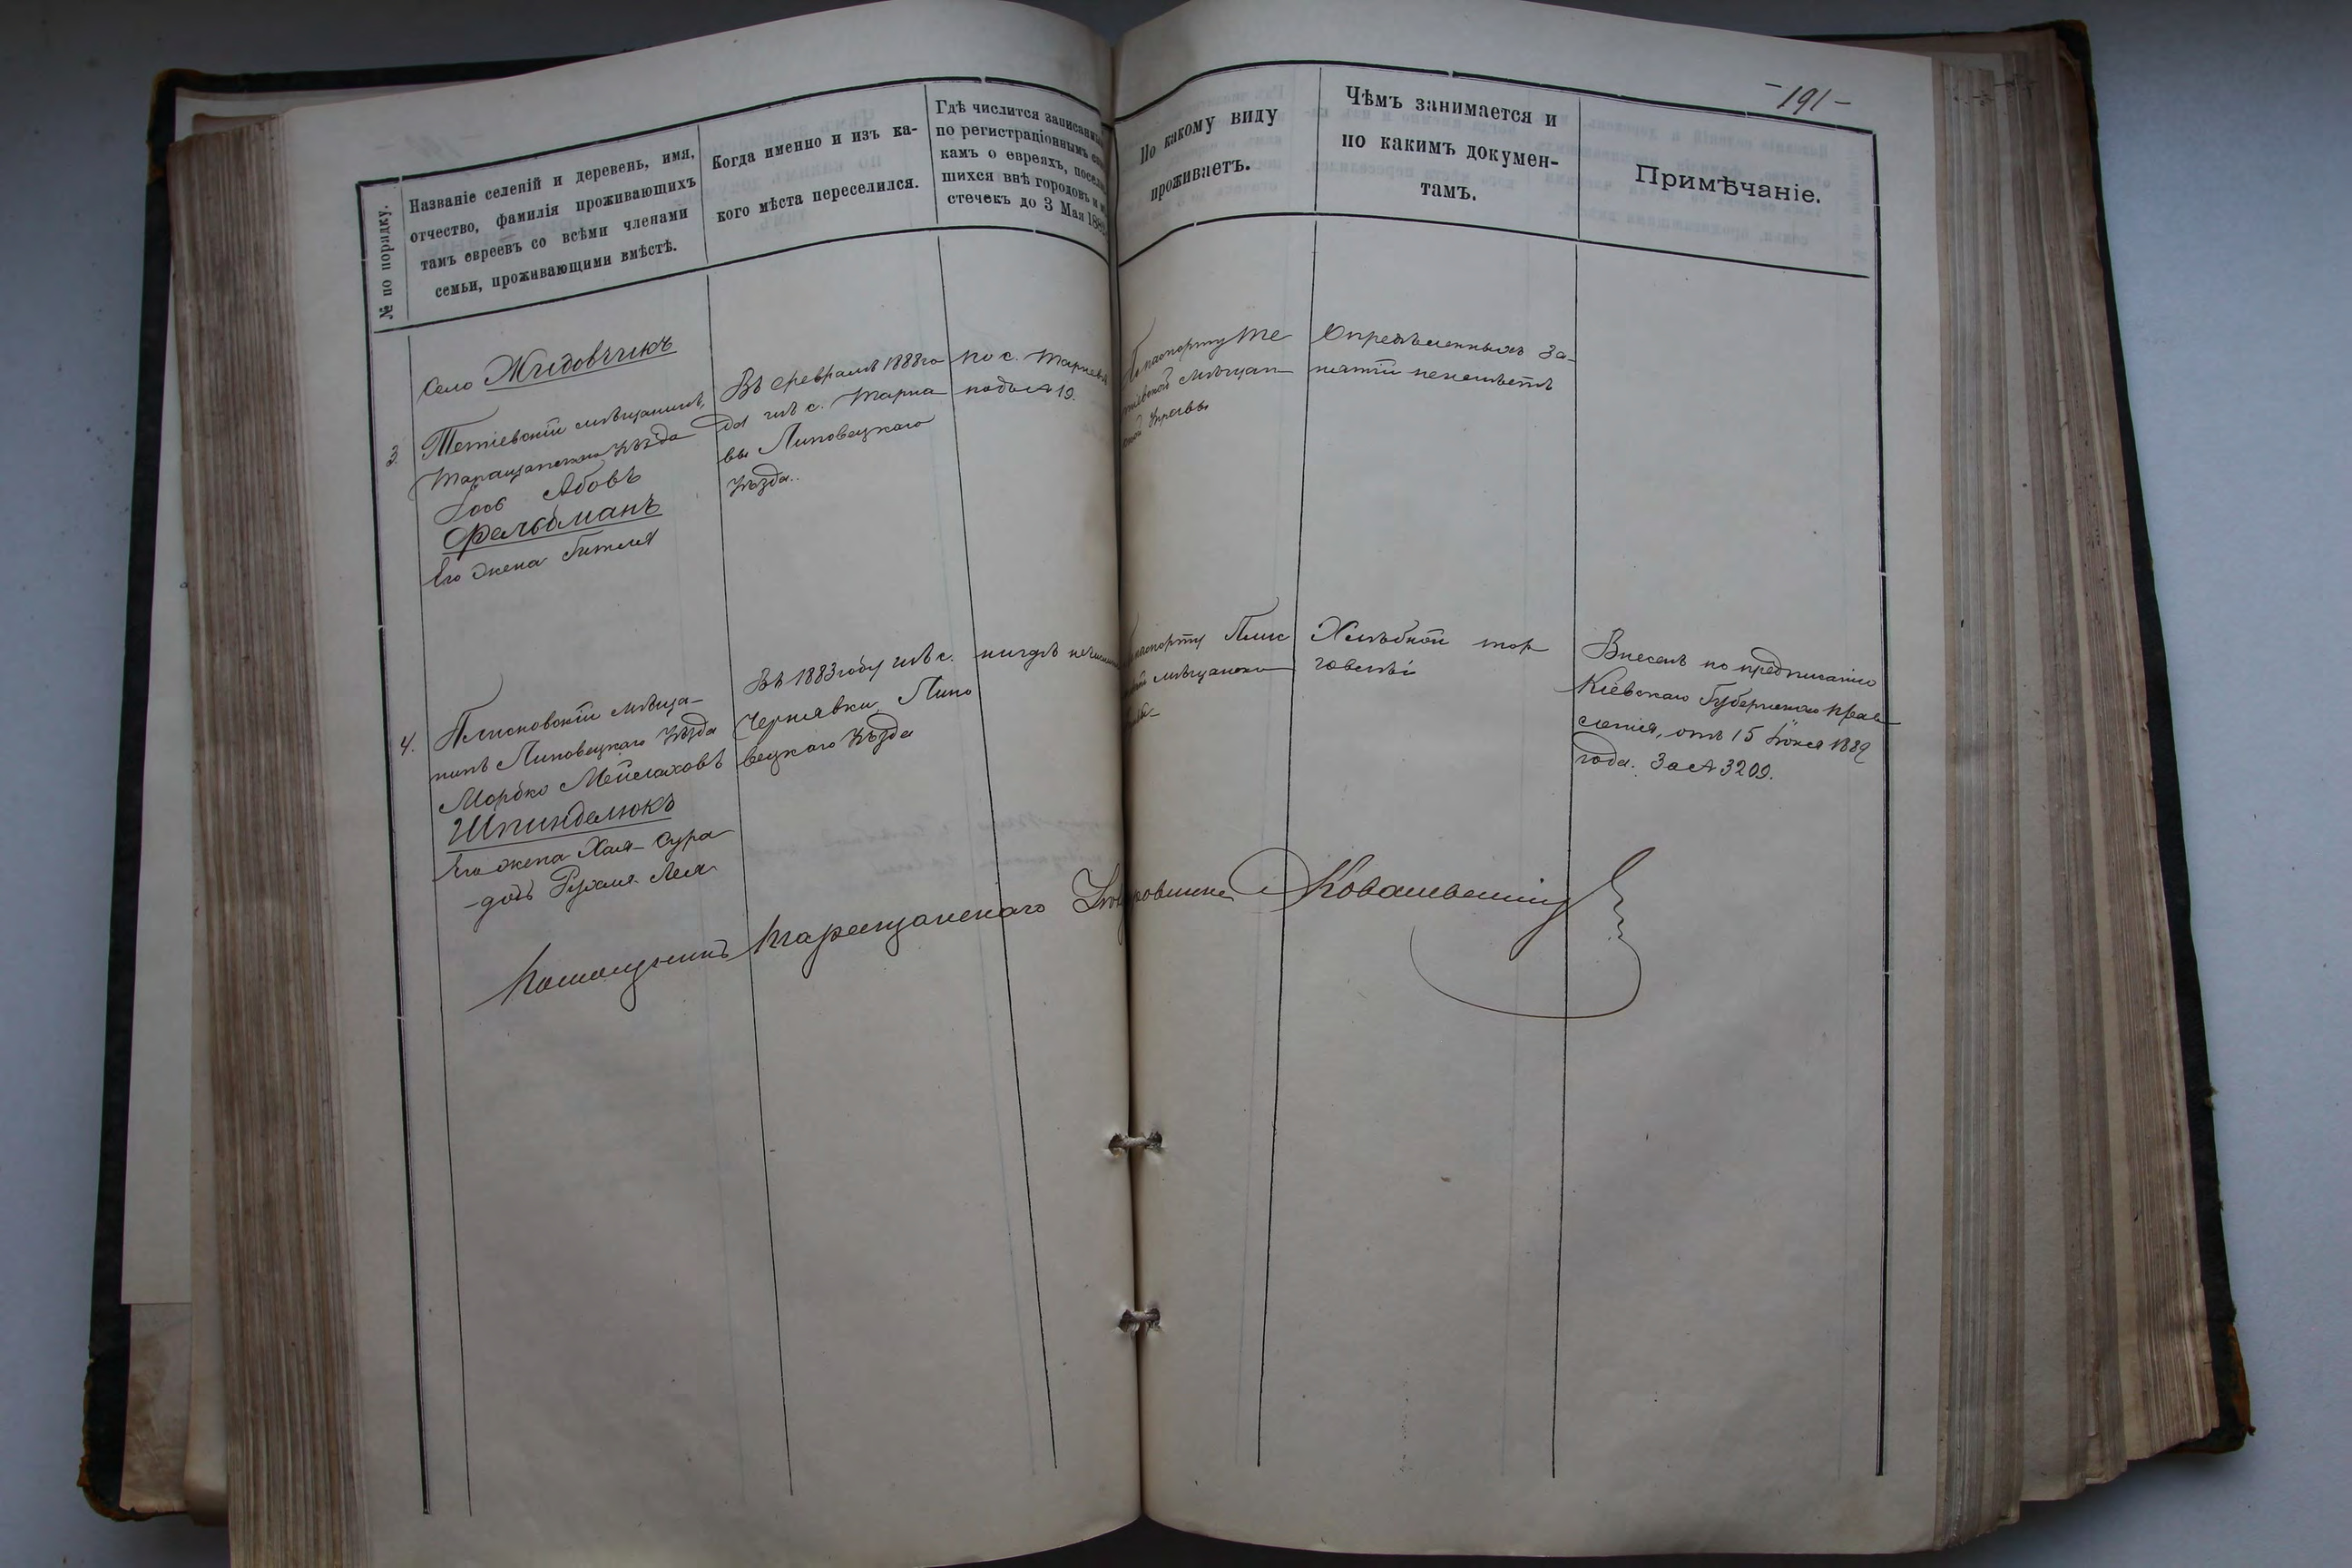 -191-
№ по порядку.
Названіе селеній и деревень, имя,
отчество, фамилія проживающихъ
тамъ евреевъ со всѣми членами
семьи, проживающими вмѣстѣ.
Когда именно и изъ ка-
кого мѣста переселился.
Гдѣ числится
по регистраціоннымъ
камъ о евреяхъ,
шихся внѣ городовъ и
стечекъ до 3 Мая
По какому виду
проживаетъ.
Чѣмъ занимается и
по какимъ докумен-
тамъ.
Примѣчаніе.
Село Жидовчикъ
3.
Тетіевскій мѣщанинъ,
Таращанскаго уѣзда
Абовъ
Фельдманъ
Его жена Гитля
Въ февралѣ 1888 го
да изъ с. Марна
вы Липовецкаго
уѣзда.
по с.
подъ № 19.
паспорту Те
мѣщан
Управы
Опредѣленныхъ за-
нятій неимѣетъ
4.
Плисковскій мѣща-
нинъ Липовецкаго уѣзда
Мошко Мейлаховъ
Шпинделюкъ
Его жена Хая-Сура
-дочь Рухля Лея
Въ 1883 году изъ с.
Чернявки, Липо
вецкаго уѣзда
нигдѣ
паспорту Плис
мѣщанско
Хлѣбной тор
говлей
Внесенъ по предписанію
Кіевскаго Губернскаго Прав
ленія, отъ 15 Іюня 1889
года. За № 3209.
Помощникъ Таращанскаго